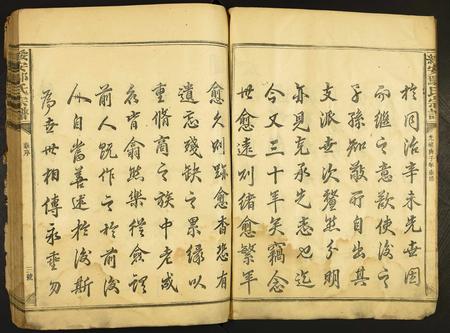 於同治辛未先世因
而繼之意欲使後之
子孫知敬所自出其
支派世次釐然分明
亦見克承先志也迄
今又三十年矣竊念
世愈遠則緒愈繁年
愈久則跡愈杳恐有
遺忘殘缺之累緣以
重脩商之族中老成
皆翕然樂從僉謂
前人既作之於前後
人自當善述於後斯
為世相傳永垂勿
安氏宗譜
序
三號